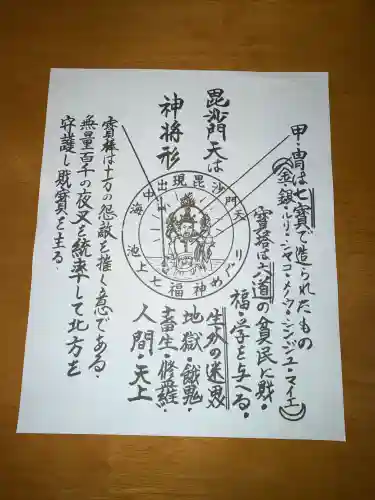 毘沙門天は
神将形
甲・冑は七寳で造られたもの
(金・銀・ルリ・シャコ・メノウ・シンジュ・マイエ)
寳塔は六道の貧民に財・
福・学を与へる・
生分の迷界
地獄・餓鬼・
畜生・修羅・
人間・天上
寳棒は十方の怨敵を摧く意である・
無量百千の夜叉を統率して北方を
守護し財寳を主る・
海中出現毘沙門天
池上七福神めぐり